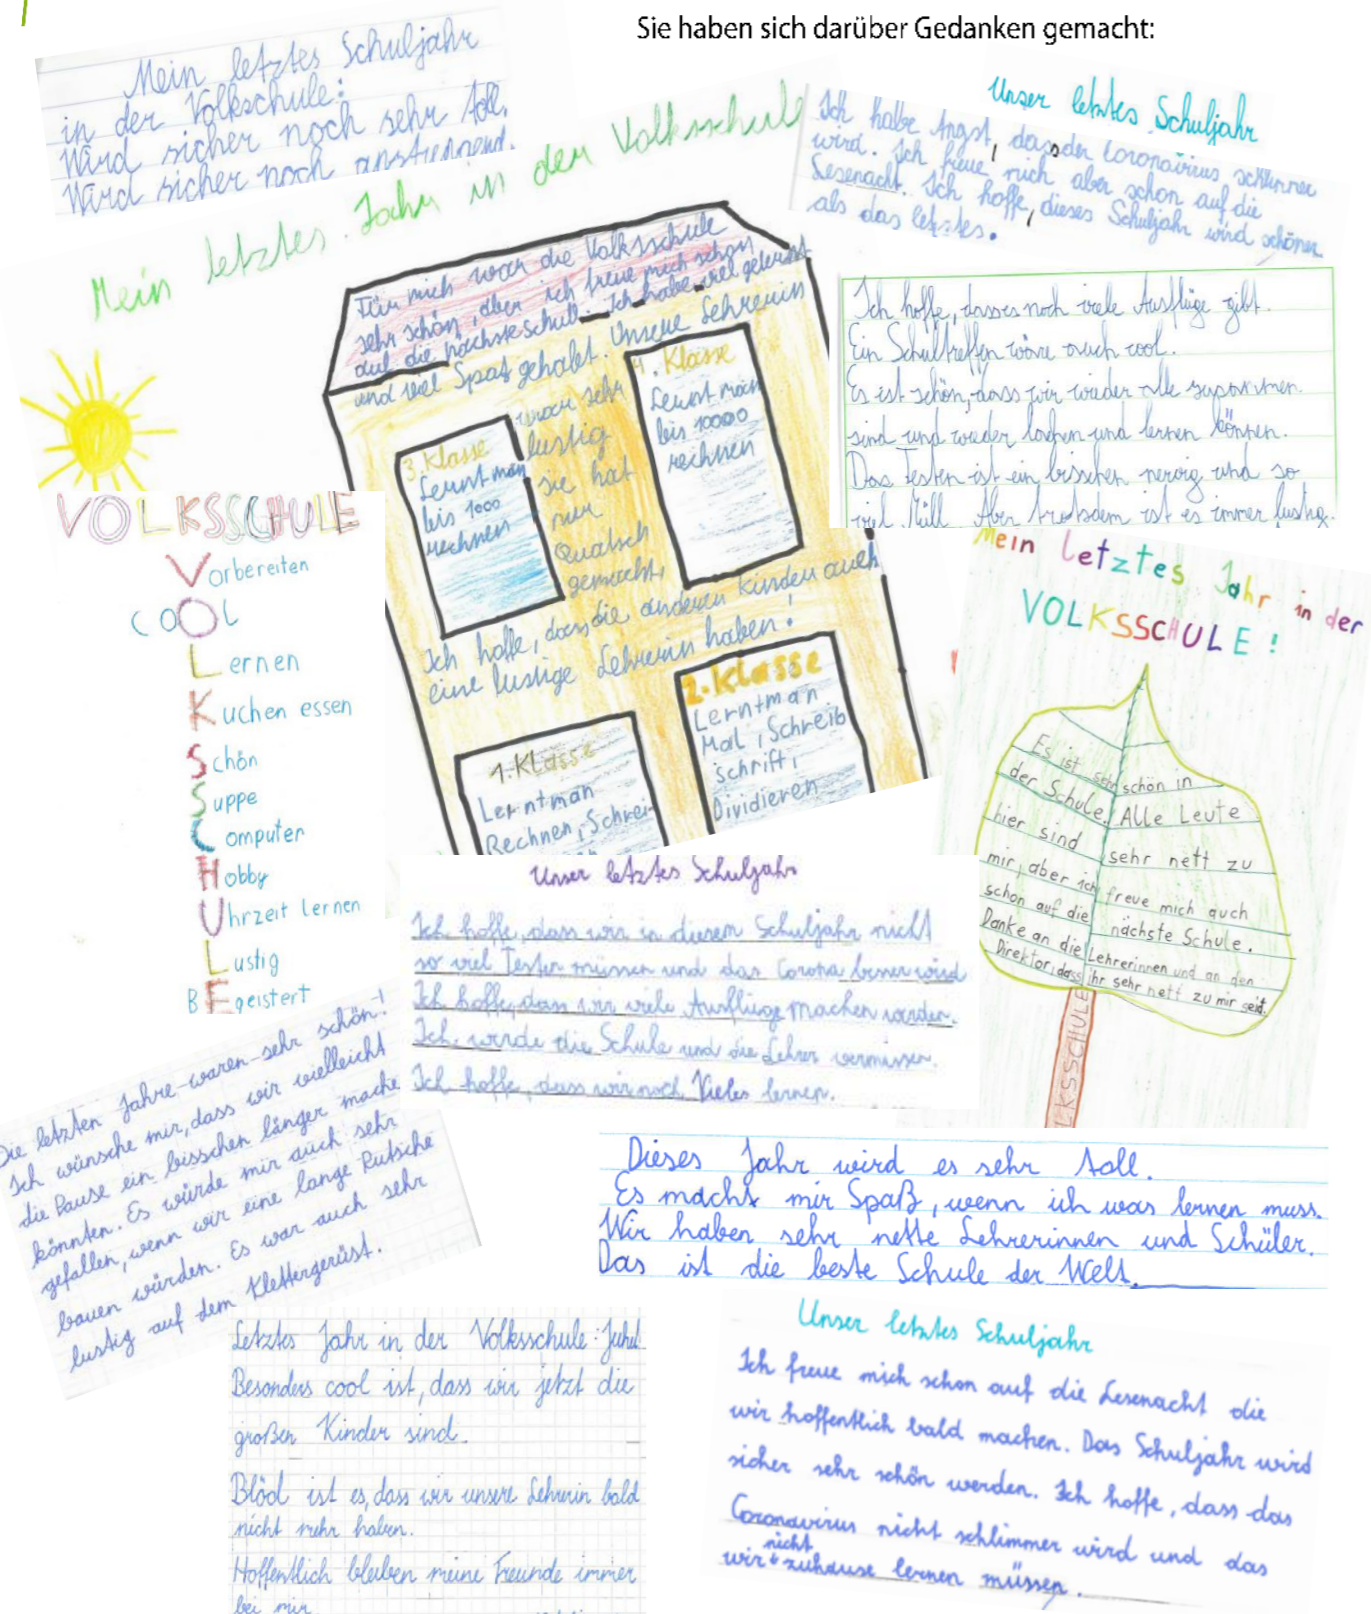 Sie haben sich darüber Gedanken gemacht:
Mein letztes Schuljahr
in der Volkschule:
Wird sicher noch sehr toll.
Wird sicher noch anstrengend.
Unser letztes Schuljahr
Ich habe Angst, dass der Coronavirus schlimmer
wird. Ich freue mich aber schon auf die
Lesenacht. Ich hoffe, dieses Schuljahr wird schöner
als das letztes.
Mein letztes Jahr in der Volksschule
Für mich war die Volksschule
sehr schön, aber ich freue mich schon
auf die nächste Schule. Ich habe viel gelernt
und viel Spaß gehabt. Unsere Lehrerin
war sehr
lustig
sie hat
nur
Quatsch
gemacht,
Ich hoffe, dass die anderen Kinder auch
eine lustige Lehrerin haben!
3. Klasse
Lernt man
bis 1000
rechnen
4. Klasse
Lernt man
bis 10000
rechnen
1. Klasse
Lerntman
Rechnen, Schrei-
2. Klasse
Lerntman
Mal, Schreib
schrift,
Dividieren
Ich hoffe, dass es noch viele Ausflüge gibt.
Ein Schultreffen wäre auch cool.
Es ist schön, dass wir wieder alle zusammen
sind und wieder lachen und lernen können.
Das Testen ist ein bisschen nervig und so
viel Müll. Aber trotzdem ist es immer lustig.
VOLKSSCHULE
Vorbereiten
COOL
Lernen
Kuchen essen
Schön
Suppe
Computer
Hobby
Uhrzeit lernen
Lustig
BEgeistert
Mein letztes Jahr in der
VOLKSSCHULE!
Es ist sehr schön in
der Schule. Alle Leute
hier sind sehr nett zu
mir, aber ich freue mich auch
schon auf die nächste Schule.
Danke an die Lehrerinnen und an den
Direktor, dass ihr sehr nett zu mir seid.
LKSSCHULE
Unser letztes Schuljahr
Ich hoffe, dass wir in diesem Schuljahr nicht
so viel Testen müssen und das Corona besser wird
Ich hoffe, dass wir viele Ausflüge machen werden.
Ich werde die Schule und die Lehrer vermissen.
Ich hoffe, dass wir noch Vieles lernen.
Die letzten Jahre waren sehr schön!
Ich wünsche mir, dass wir vielleicht
die Pause ein bisschen länger mache
könnten. Es würde mir auch sehr
gefallen, wenn wir eine lange Rutsche
bauen würden. Es war auch sehr
lustig auf dem Klettergerüst.
Dieses Jahr wird es sehr toll.
Es macht mir Spaß, wenn ich was lernen muss.
Wir haben sehr nette Lehrerinnen und Schüler.
Das ist die beste Schule der Welt.
Letztes Jahr in der Volksschule: Juhu!
Besonders cool ist, dass wir jetzt die
großen Kinder sind.
Blöd ist es, dass wir unsere Lehrerin bald
nicht mehr haben.
Hoffentlich bleiben meine Freunde immer
bei mir
Unser letztes Schuljahr
Ich freue mich schon auf die Lesenacht die
wir hoffentlich bald machen. Das Schuljahr wird
sicher sehr schön werden. Ich hoffe, dass das
Coronavirus nicht schlimmer wird und das
wir nicht zuhause lernen müssen.